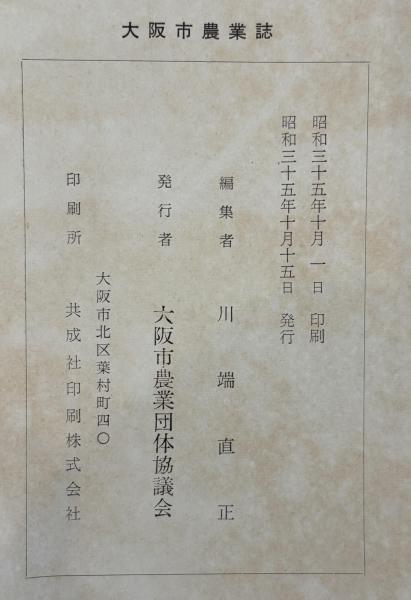 大阪市農業誌
昭和三十五年十月 一 日 印刷
昭和三十五年十月十五日 発行
編集者 川端直正
発行者 大阪市農業団体協議会
大阪市北区葉村町四〇
印刷所 共成社印刷株式会社